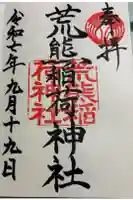 奉拝
荒熊稲荷神社
荒熊稲
荷神社
令和七年九月十九日